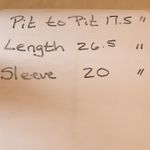 Pit to Pit 17.5 "
Length 26.5 "
Sleeve 20 "